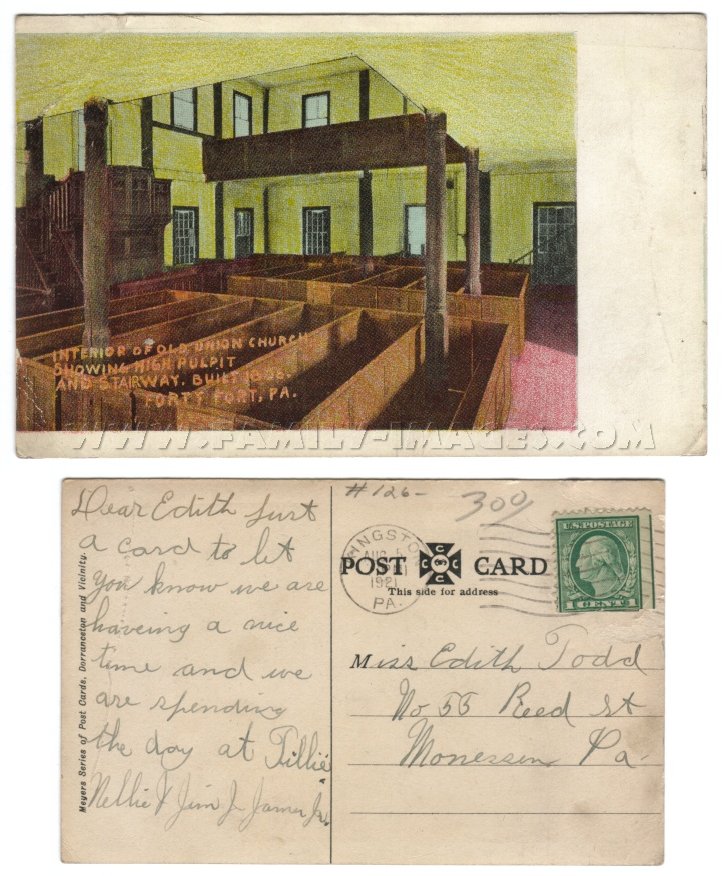 INTERIOR OF OLD UNION CHURCH,
SHOWING HIGH PULPIT
AND STAIRWAY. BUILT
FORTY FORT, PA.
WWW.FAMILY-IMAGES.COM
Meyers Series of Post Cards, Dorranceton and Vicinity.
Dear Edith Just
a card to let
you know we are
haveing a nice
time and we
are spending
the day at Tillie
Nellie & Jim J. James Jr.
#126-
300
KINGSTON
AUG
1921
PA.
POST CARD
This side for address
U.S. POSTAGE
1 CENT
Miss Edith Todd
No 55 Reed St
Monessen Pa